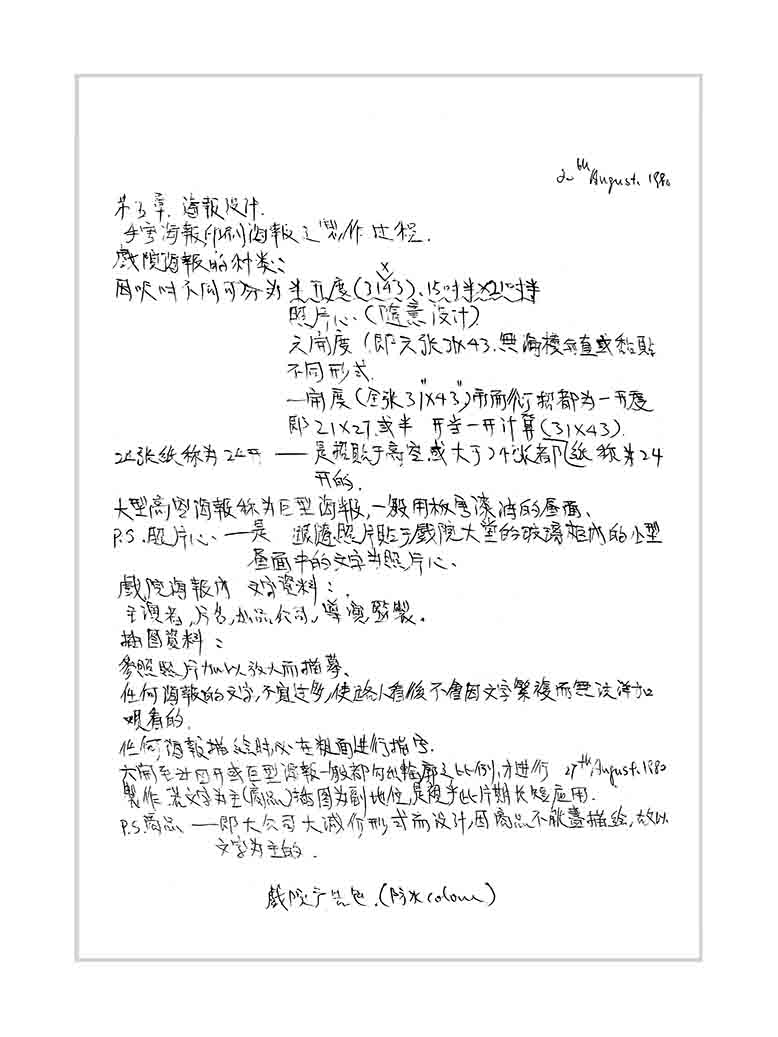 20th August. 1980
第3章. 海報设计.
手写海報印刷海報之製作过程.
戲院海報的种类:
因呎吋不同可分为 半开度(31x43).15吋半x21吋半
照片心.(隨意设计)
六開度(即六张31x43.無論横 直或粘貼
不同形式.
一開度(全张31"x43") 都为一开度
即21x27.或半 开当一开计算(31x43).
24张纸称为24开 — 是招貼于高空.或大于24张都 纸称为24
开的.
大型高空海報称为巨型海報,一般用板 漆油的画面、
P.S.照片心. — 是 跟随照片貼于戲院大堂的玻璃柜内的小型
画面中的文字为照片心、
戲院海報内 文字資料:.
主演者,片名,出品公司,導演 監製。
插图資料:
參照照片加以放大而描摹、
任何海報的文字,不宜过多,使路人看後不會因文字繁複而無法詳加
观看的.
任何海報描绘時必在粗面進行描写.
六開至廿四开或巨型海報一般都 輪廓之比例,才進行 27th August.1980
製作.若文字为主(商品)插图为副地位,是視乎此片期长短应用.
P.S.商品 — 即大公司大減价形式而设计,因商品不能盡描绘,故以
文字为主的.
戲院广告色.(防水colour)